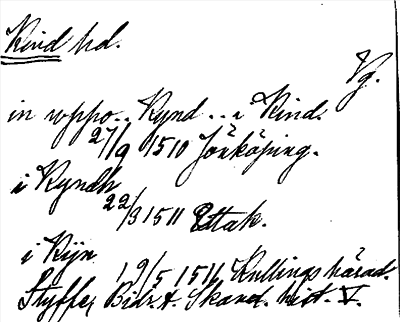 Kind hd.
Vg.
in uppo.. Kynd .. i Kind.
27/9 1510 Jönköping.
i Kyndh
22/3 1511 Ettak.
i Kijn
19/5 1516 Kullings härad.
Styffe, Bidr. t. Skand. hist. V.